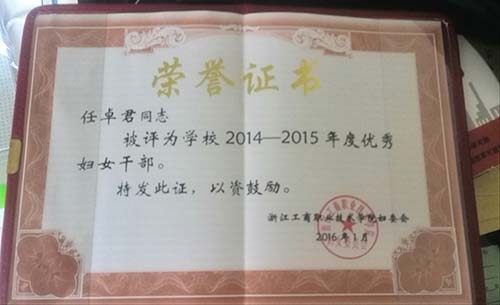 荣誉证书
任卓君同志
被评为学校2014—2015年度优秀
妇女干部。
特发此证，以资鼓励。
浙江工商职业技术学院妇委会
2016年1月